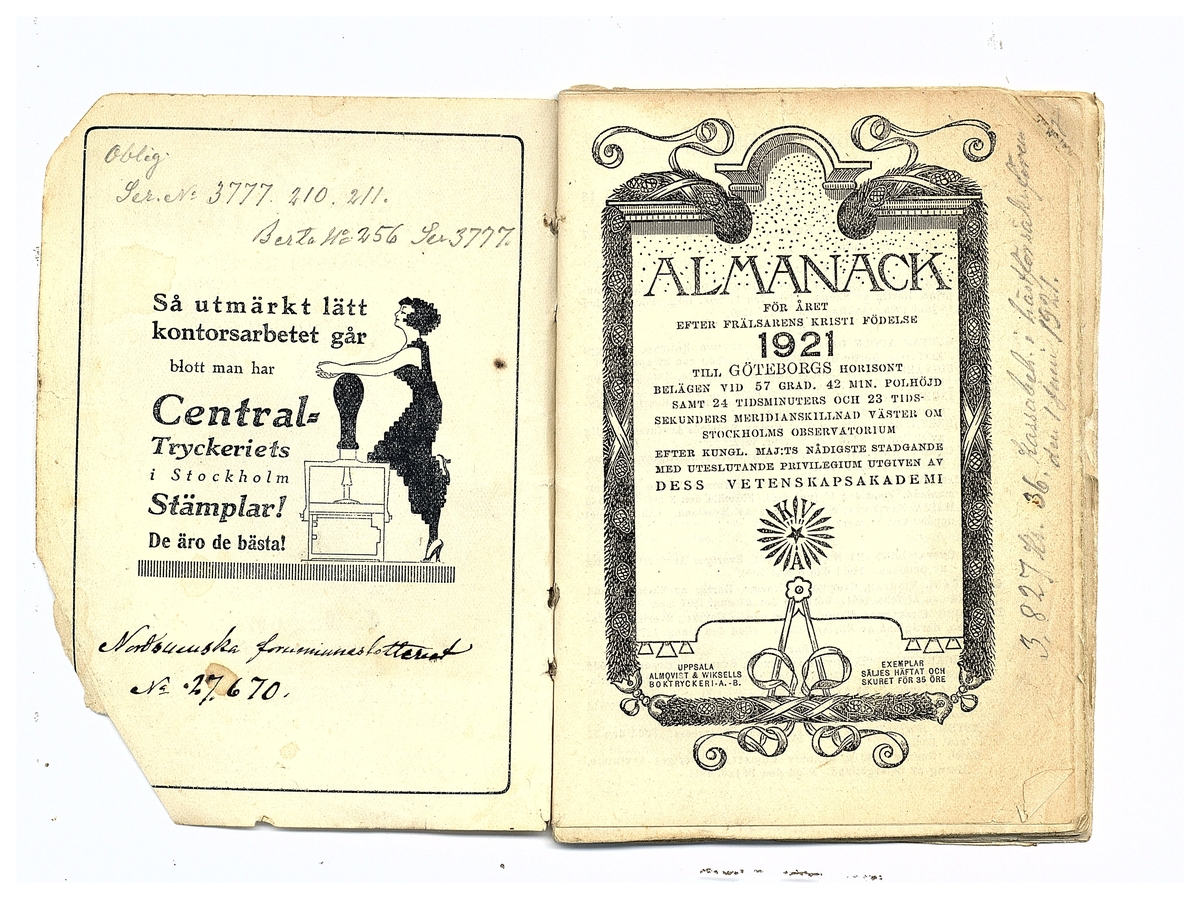 Oblig
Ser. No 3777. 210. 211.
Berta No 256 Ser 3777.
Så utmärkt lätt
kontorsarbetet går
blott man har
Central-
Tryckeriets
i Stockholm
Stämplar!
De äro de bästa!
Nordsvenska fornminneslotteriet
No 27,670.
ALMANACK
FÖR ÅRET
EFTER FRÄLSARENS KRISTI FÖDELSE
1921
TILL GÖTEBORGS HORISONT
BELÄGEN VID 57 GRAD. 42 MIN. POLHÖJD
SAMT 24 TIDSMINUTERS OCH 23 TIDS-
SEKUNDERS MERIDIANSKILLNAD VÄSTER OM
STOCKHOLMS OBSERVATORIUM
EFTER KUNGL. MAJ:TS NÅDIGSTE STADGANDE
MED UTESLUTANDE PRIVILEGIUM UTGIVEN AV
DESS VETENSKAPSAKADEMI
K V A
UPPSALA
ALMQVIST & WIKSELLS
BOKTRYCKERI-A.-B.
EXEMPLAR
SÄLJES HÄFTAT OCH
SKURET FÖR 35 ÖRE
3,827 kr. 36 Kassabeh. i
den 1 juni 1921.